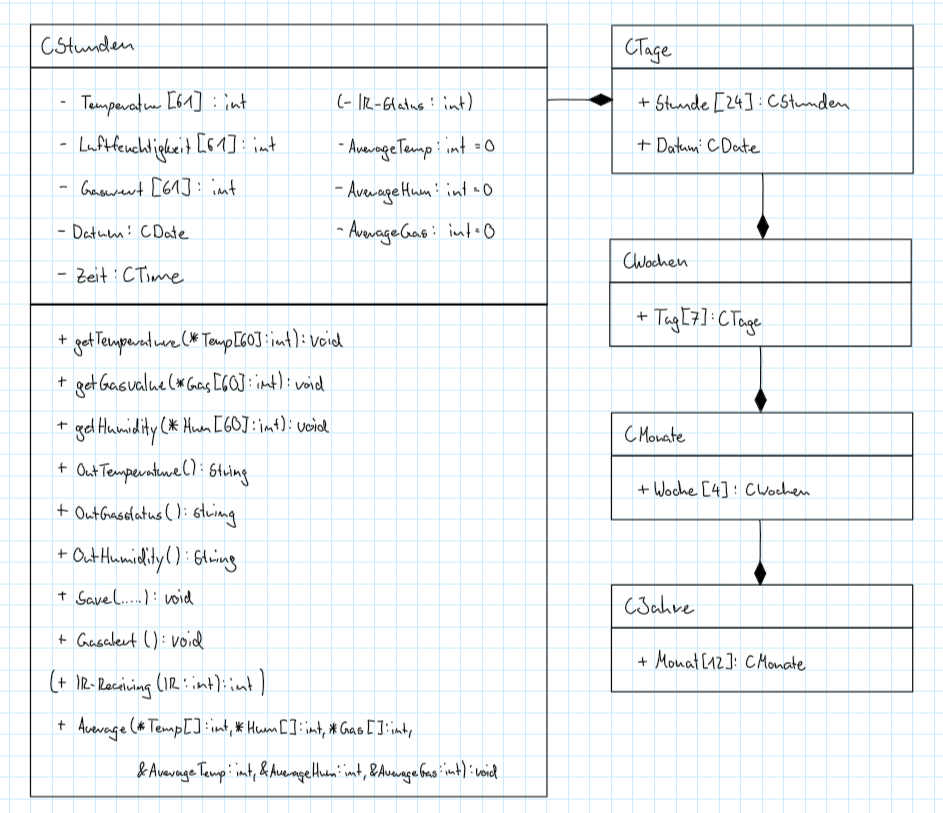 CStunden
- Temperatur [61] : int
(- IR-Status : int)
- Luftfeuchtigkeit [61] : int
- AverageTemp : int = 0
- Gaswert [61] : int
- AverageHum : int = 0
- Datum : CDate
- AverageGas : int = 0
- Zeit : CTime
+ getTemperature (* Temp[60] : int) : void
+ getGasvalue (*Gas [60] : int) : void
+ getHumidity (* Hum [60] : int) : void
+ OutTemperature() : String
+ OutGasstatus () : String
+ OutHumidity () : String
+ Save(.....) : void
+ Gasalert () : void
(+ IR-Receiving (IR : int) : int )
+ Average (* Temp[] : int, * Hum[] : int, * Gas [] : int,
&AverageTemp : int, &AverageHum : int, &AverageGas : int) : void
CTage
+ Stunde [24] : CStunden
+ Datum : CDate
CWochen
+ Tag [7] : CTage
CMonate
+ Woche [4] : CWochen
CJahre
+ Monat [12] : CMonate